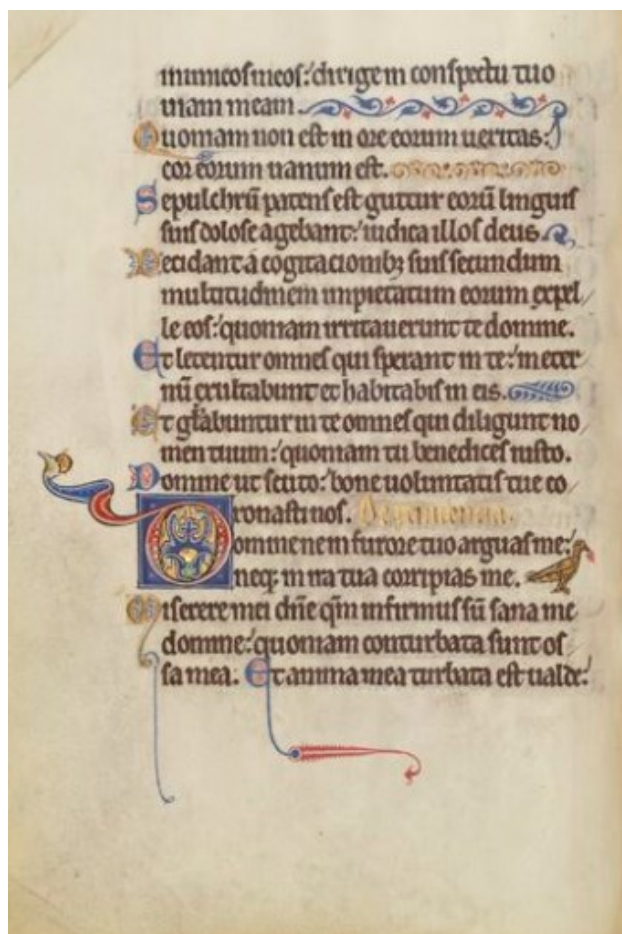 inimicos meos: dirige in conspectu tuo
uiam meam.
Quoniam non est in ore eorum ueritas:
cor eorum uanum est.
Sepulchrū patens est guttur eorū linguis
suis dolose agebant: iudica illos deus.
Decidant a cogitacionibꝫ suis secundum
multitudinem impietatum eorum expel
le eos: quoniam irritauerunt te domine.
Et letentur omnes qui sperant in te: in eter
nū exultabunt et habitabis in eis.
Et gl̄abuntur in te omnes qui diligunt no
men tuum: quoniam tu benedices iusto.
Domine ut scuto: bone uoluntatis tue co
ronasti nos.
Domine ne in furore tuo arguas me:
neqꝫ in ira tua corripias me.
Miserere mei dn̄e qm̄ infirmus sū sana me
domine: quoniam conturbata sunt os
sa mea. Et anima mea turbata est ualde: